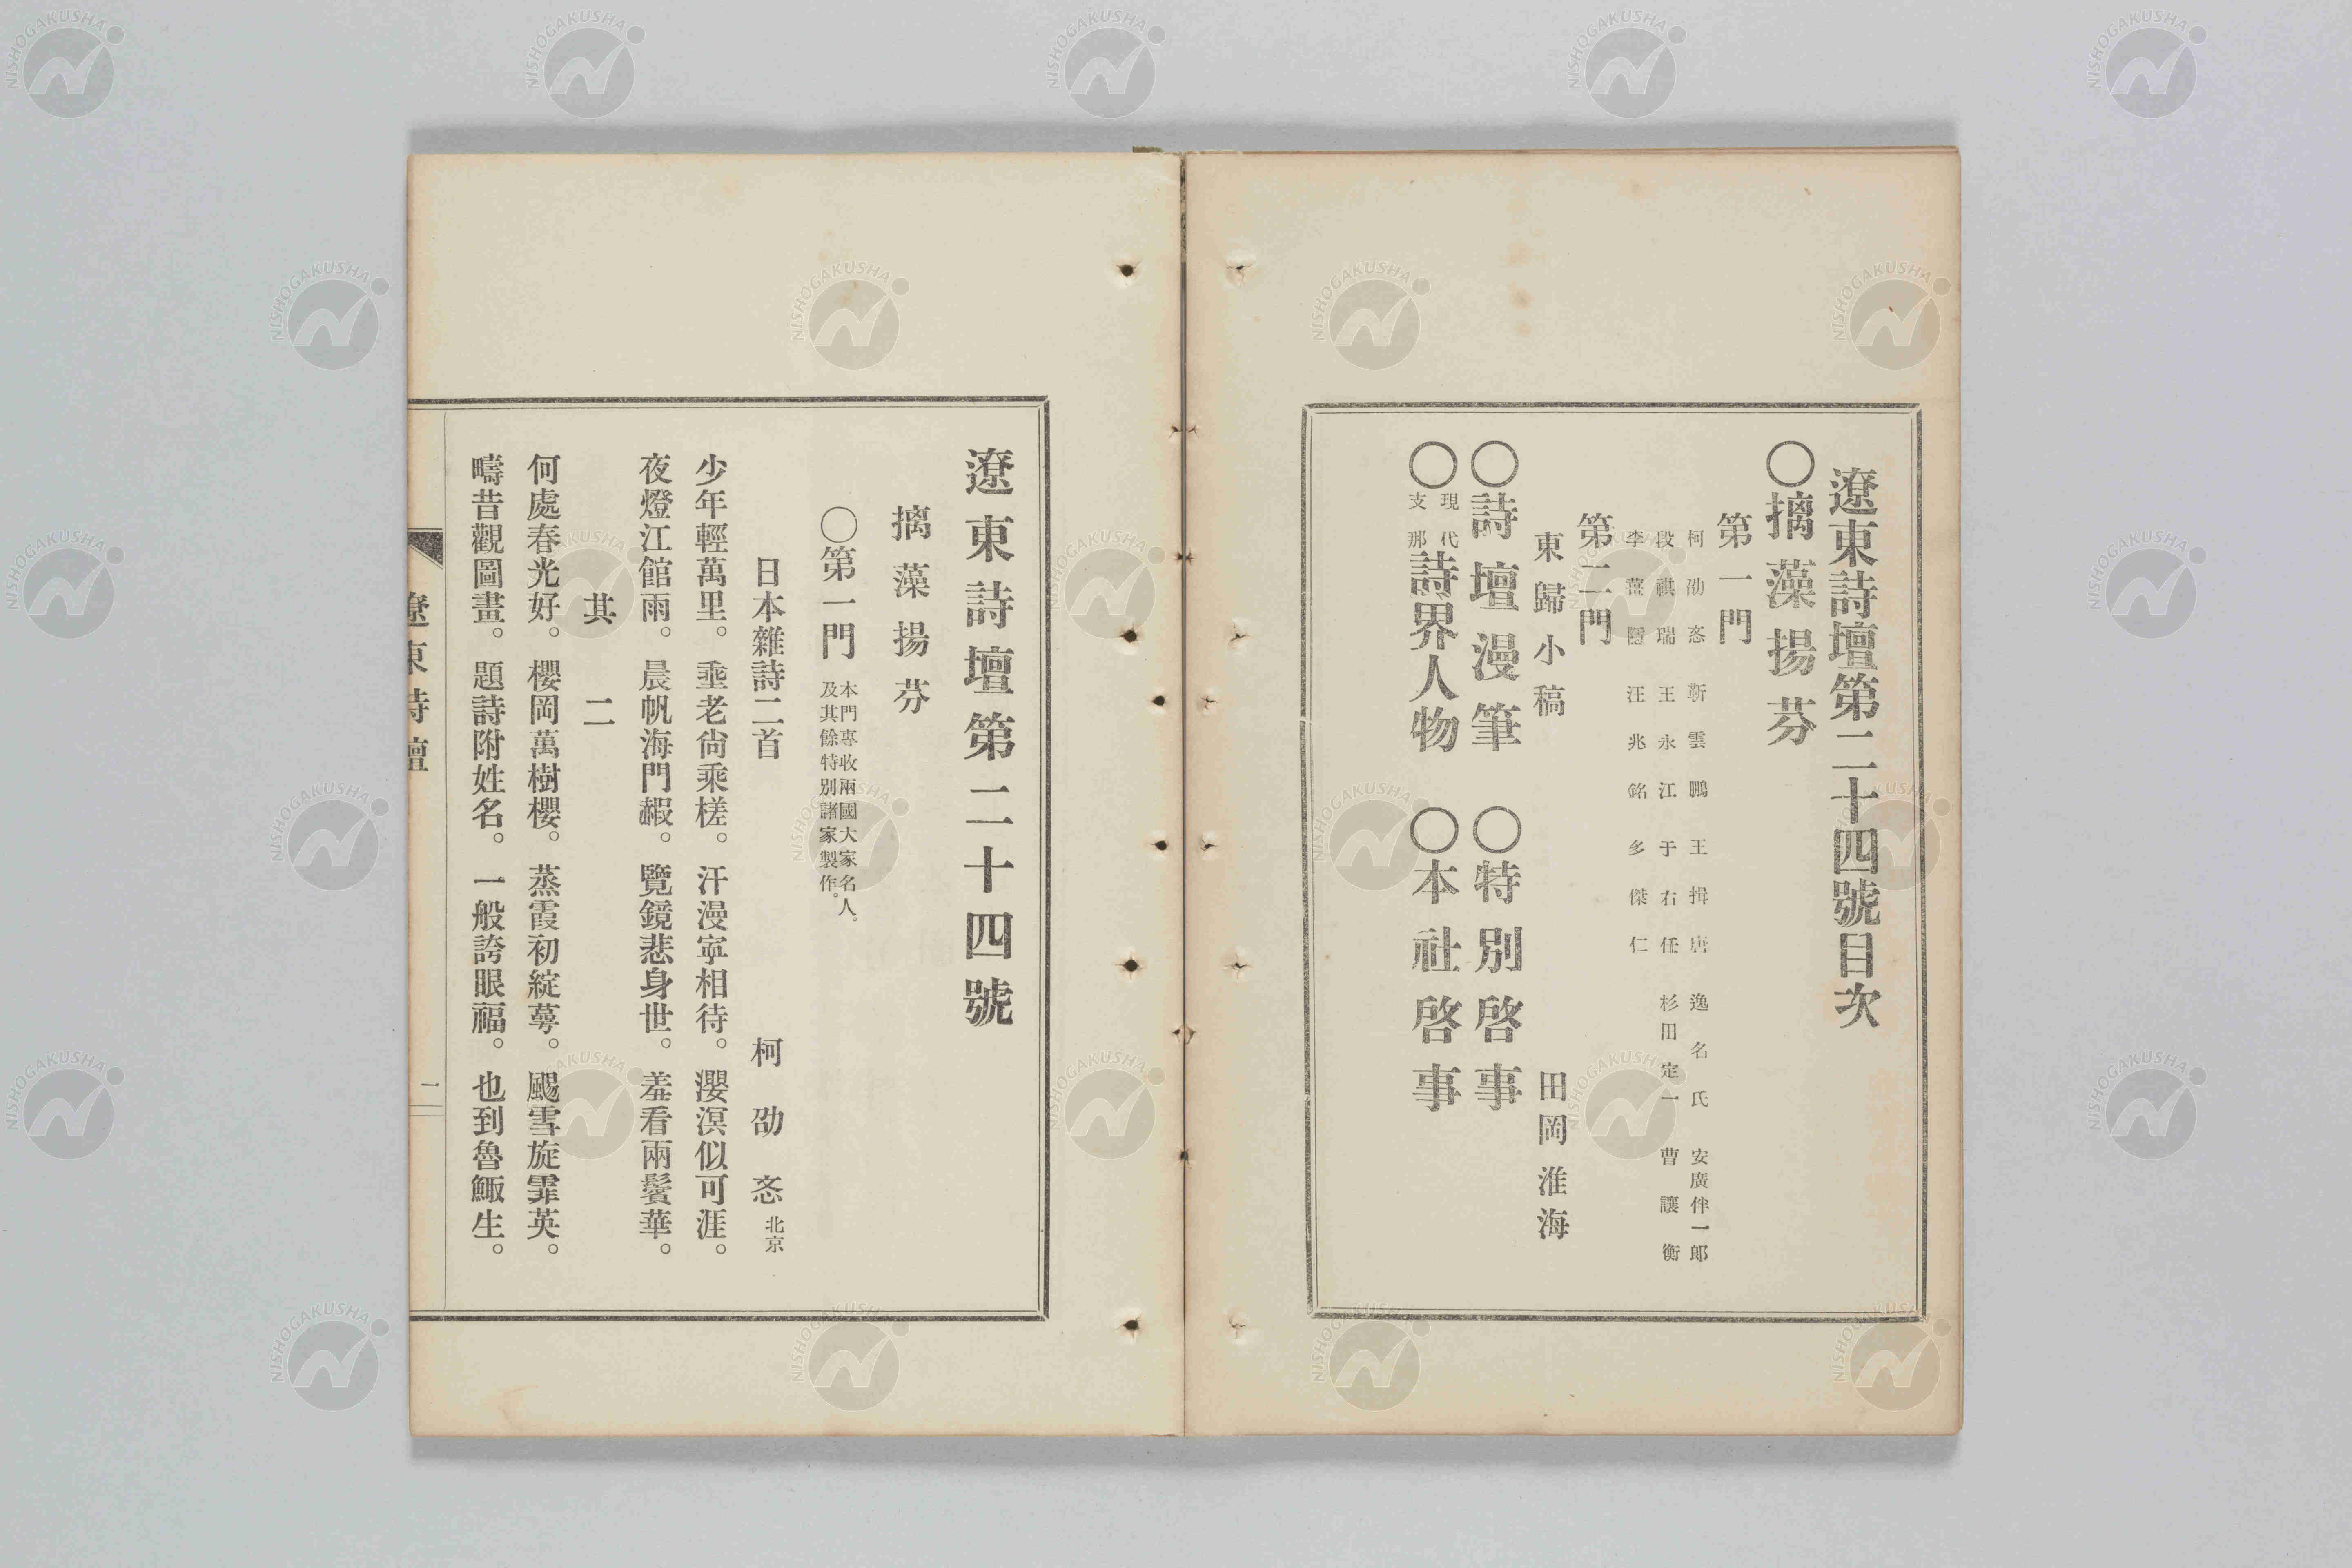 遼東詩壇第二十四號目次
〇摛藻揚芬
第一門
柯劭忞 靳雲鵬 王揖唐 逸名氏 安廣伴一郎
段祺瑞 王永江 于右任 杉田定一 曹讓衡
李葷隱 汪兆銘 多傑仁
第二門
東歸小稿 田岡淮海
〇詩壇漫筆 〇特別啓事
〇現代支那詩界人物 〇本社啓事
遼東詩壇第二十四號
摛藻揚芬
〇第一門 本門專收兩國大家名人。及其餘特別諸家製作。
日本雜詩二首 柯劭忞 北京
少年輕萬里。垂老尙乘槎。汗漫寧相待。瀴溟似可涯。
夜燈江館雨。晨帆海門赮。覽鏡悲身世。羞看兩鬢華。
其二
何處春光好。櫻岡萬樹櫻。蒸霞初綻萼。颺雪旋霏英。
疇昔觀圖畫。題詩附姓名。一般誇眼福。也到魯鯫生。
遼東詩壇
一
NISHOGAKUSHA